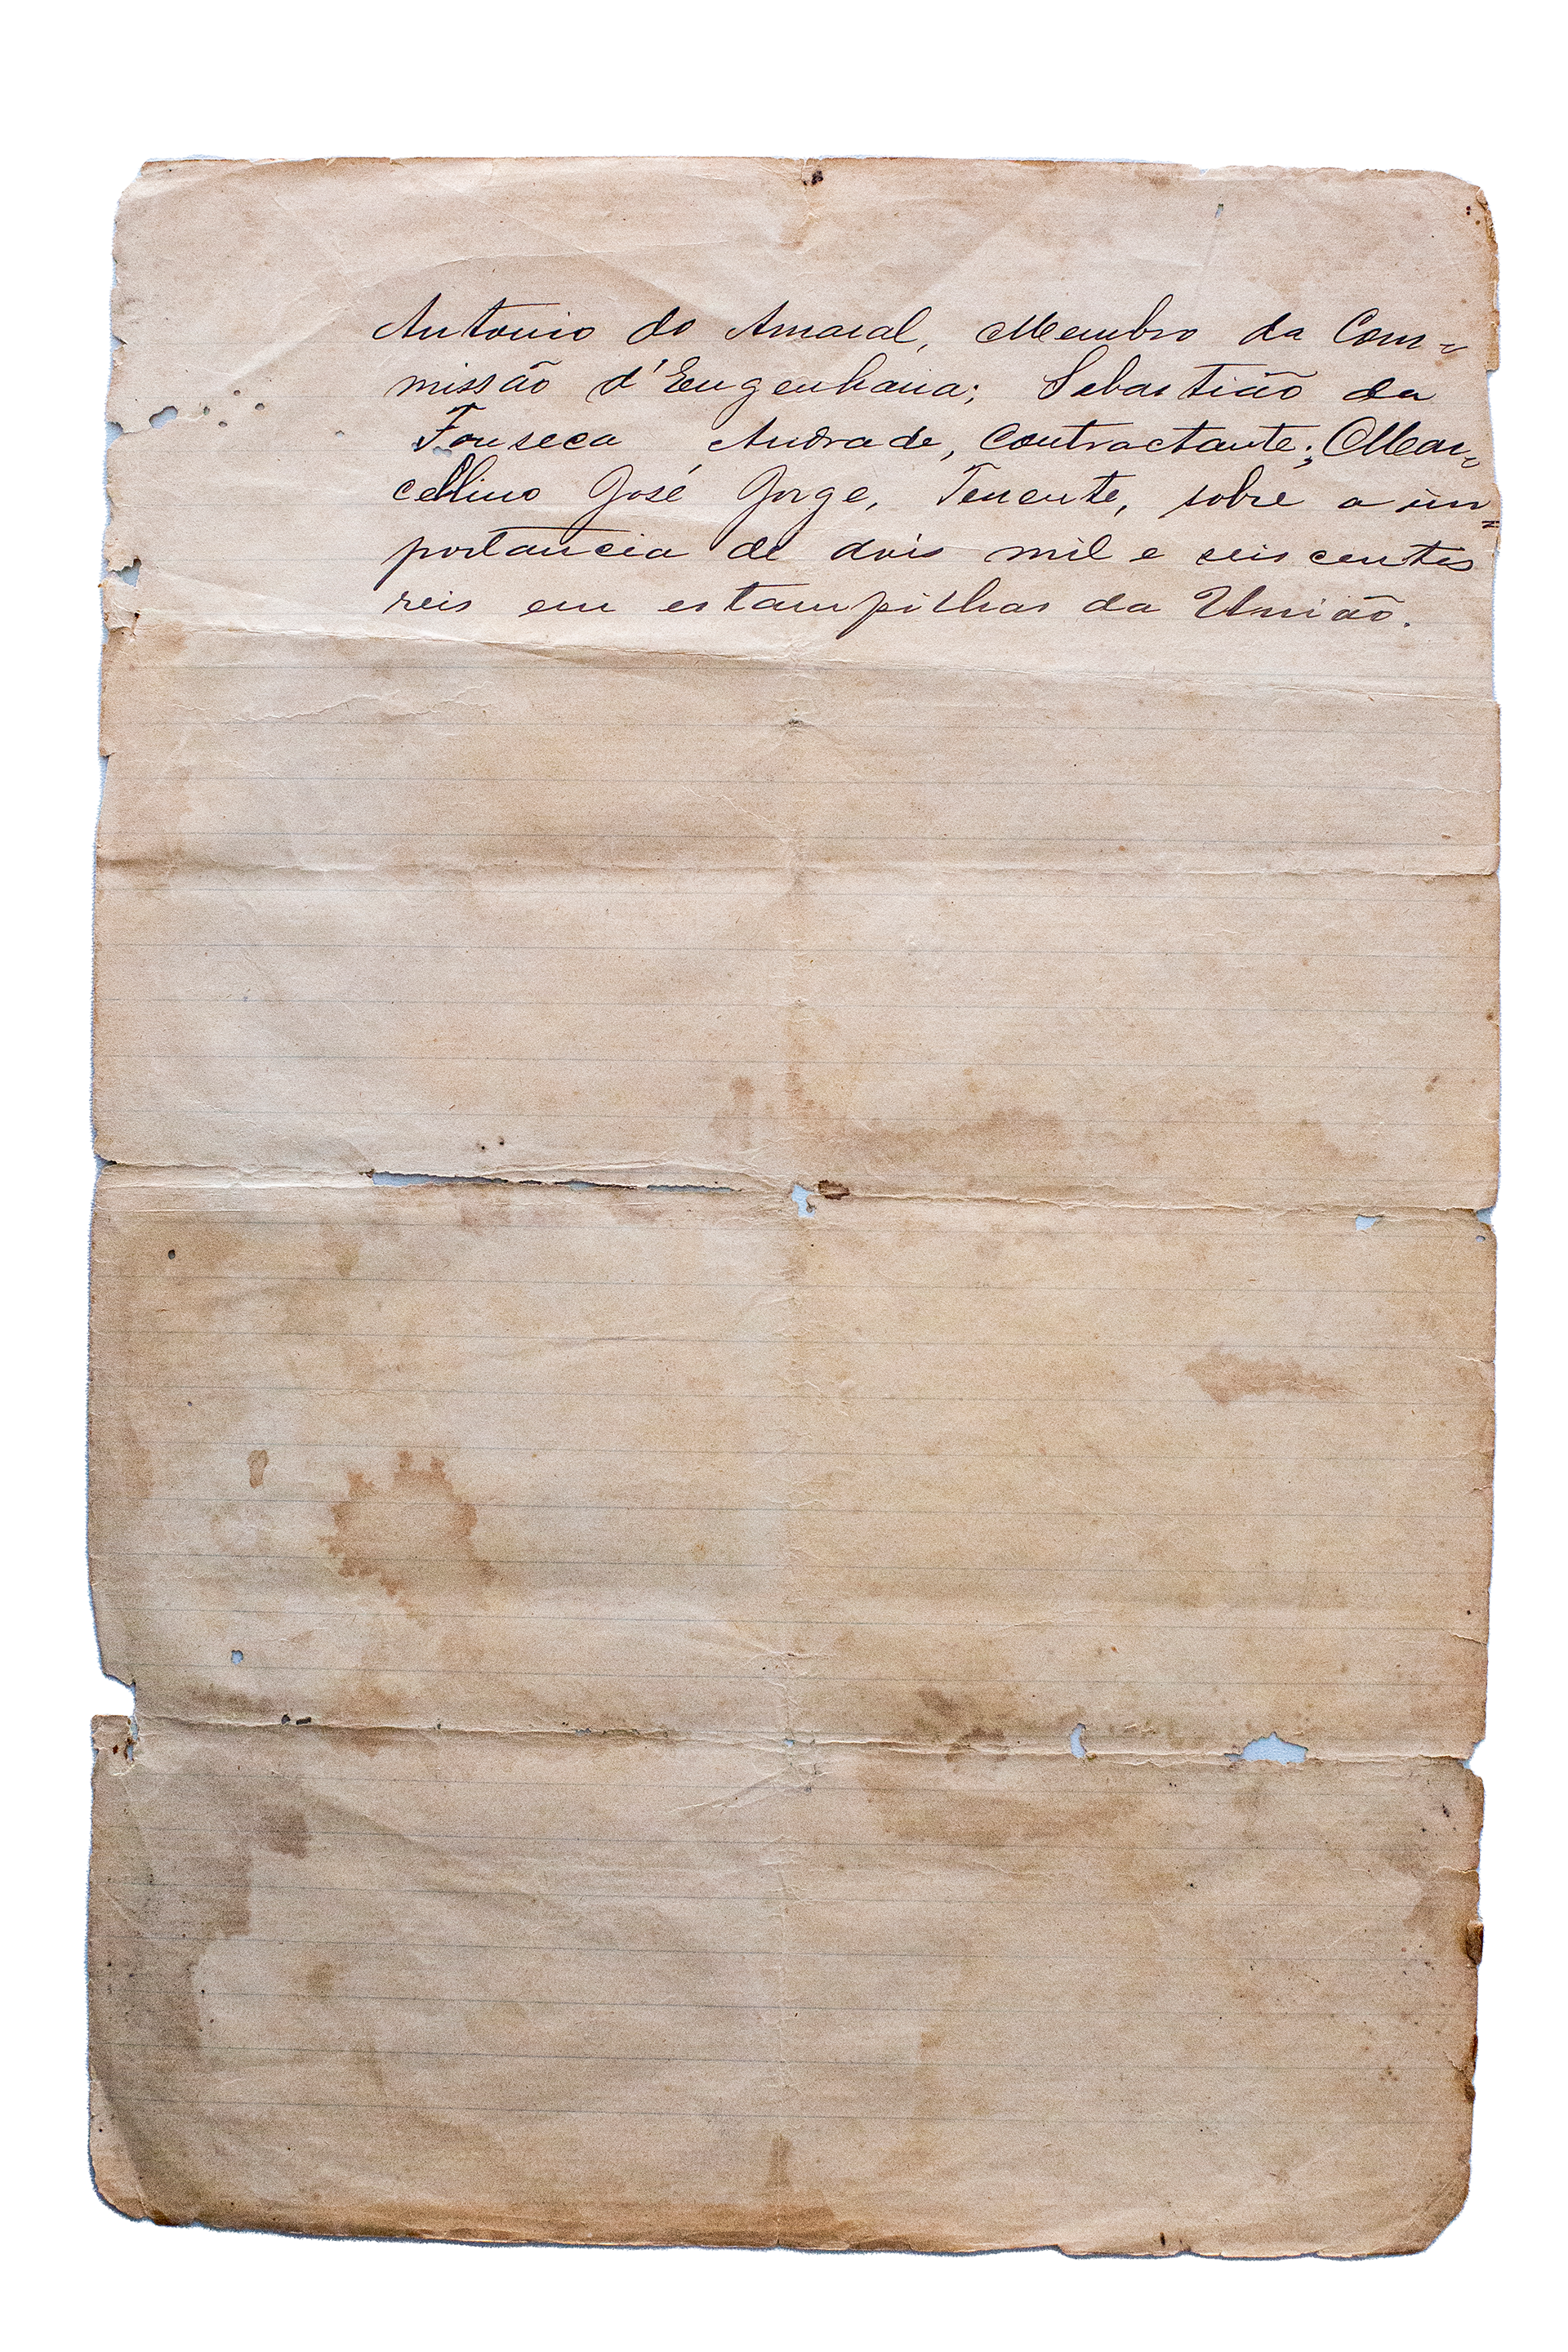 Antonio do Amaral, Membro da Com=
missão d'Engenharia; Sebastião da
Fonseca Andrade, Contractante; Mar=
cellino José Jorge, Tenente, sobre a im=
portancia de dois mil e seis centos
reis em estampilhas da União.